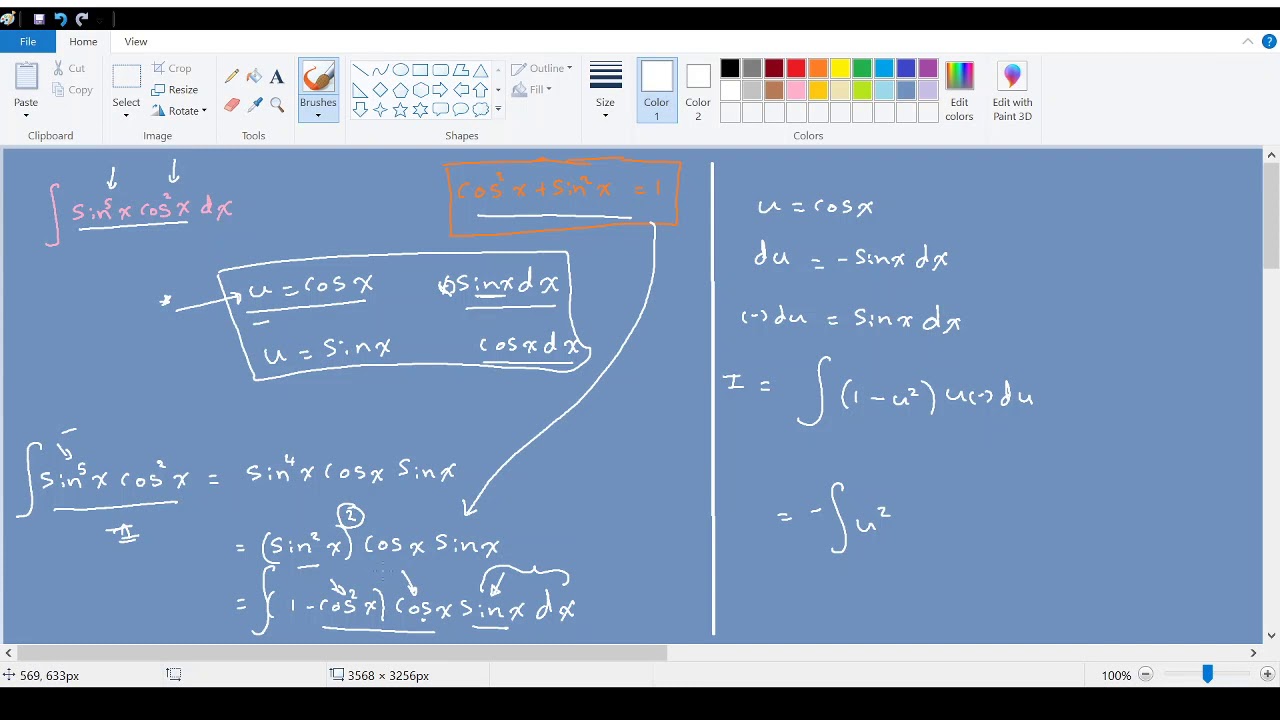 File Home View
Paste Cut Copy Clipboard
Select Crop Resize Rotate Image
A Tools
Brushes
Outline Fill Shapes
Size
Color 1 Color 2 Edit colors Colors
Edit with Paint 3D
∫ sin⁵x cos²x dx
cos²x + sin²x = 1
u = cosx sinxdx
u = sinx cosxdx
∫ sin⁵x cos²x = sin⁴x cosx sinx
= (sin²x)² cosx sinx
= ∫(1-cos²x) cosx sinx dx
u = cosx
du = -sinx dx
(-) du = sinx dx
I = ∫(1-u²) u(-) du
= -∫u²
569, 633px 3568 × 3256px 100%